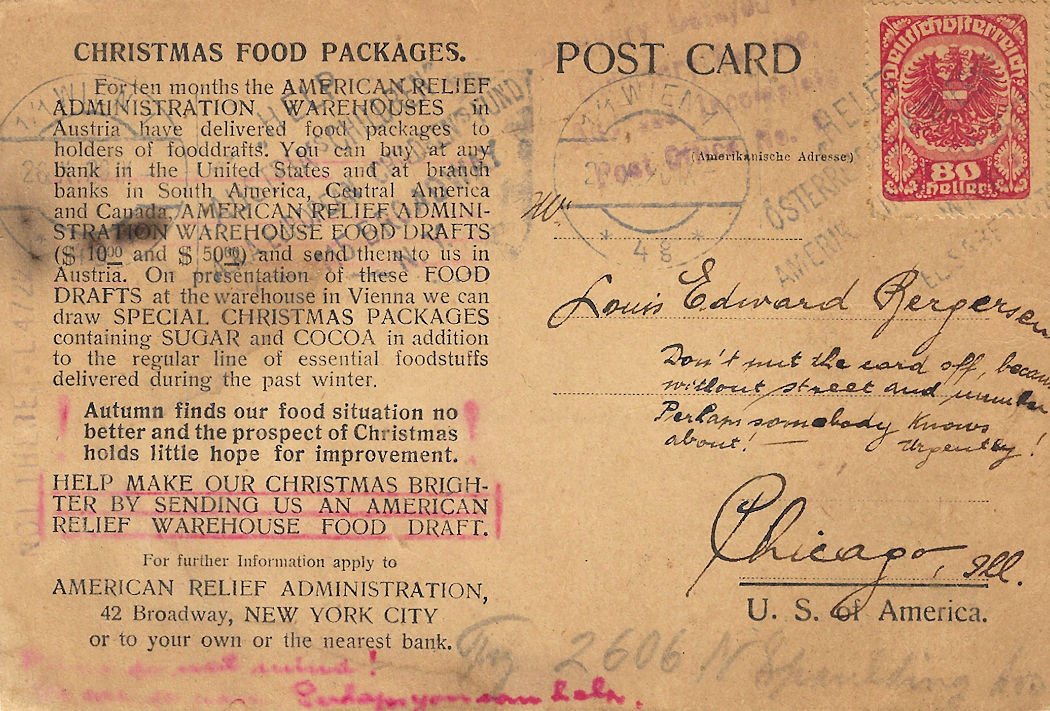 CHRISTMAS FOOD PACKAGES.
For ten months the AMERICAN RELIEF
ADMINISTRATION WAREHOUSES in
Austria have delivered food packages to
holders of fooddrafts. You can buy at any
bank in the United States and at branch
banks in South America, Central America
and Canada, AMERICAN RELIEF ADMINI-
STRATION WAREHOUSE FOOD DRAFTS
($ 1000 and $ 5000) and send them to us in
Austria. On presentation of these FOOD
DRAFTS at the warehouse in Vienna we can
draw SPECIAL CHRISTMAS PACKAGES
containing SUGAR and COCOA in addition
to the regular line of essential foodstuffs
delivered during the past winter.
Autumn finds our food situation no
better and the prospect of Christmas
holds little hope for improvement.
HELP MAKE OUR CHRISTMAS BRIGH-
TER BY SENDING US AN AMERICAN
RELIEF WAREHOUSE FOOD DRAFT.
For further Information apply to
AMERICAN RELIEF ADMINISTRATION,
42 Broadway, NEW YORK CITY
or to your own or the nearest bank.
mind!
Perhaps you can help.
POST CARD
Deutschösterreich
80
Heller
1/1 WIEN
48
1/1 WIEN
Post Office
(Amerikanische Adresse)
ÖSTERR
AMERIK
Louis Edward Bergersen
Don't put the card off, becau
without street and number
Perhaps somebody knows
about! — Urgently!
Chicago, Ill.
U. S. of America.
Try 2606 N Spaulding